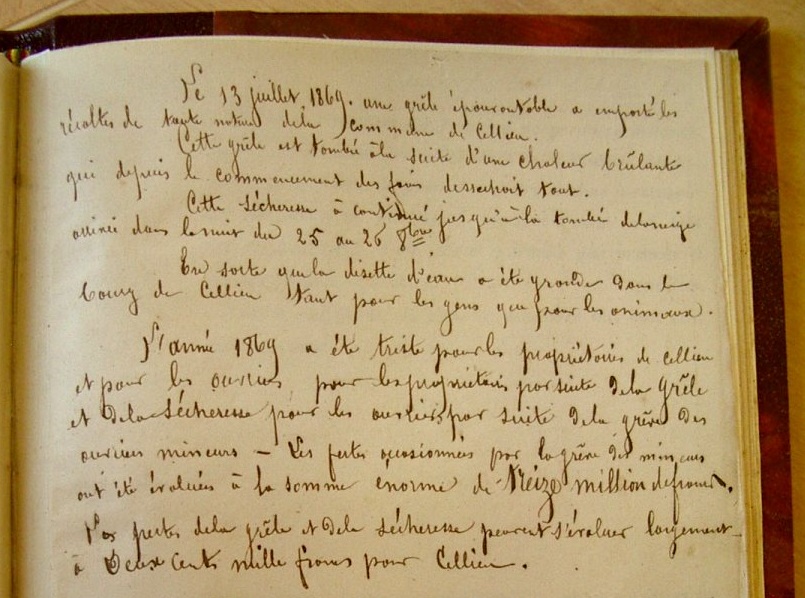 Le 13 juillet 1869. une grêle épouvantable a emporté les
récoltes de toute nature dela commune de Cellieu.
Cette grêle est tombée àla suite d'une chaleur brûlante
qui depuis le commencement des foins dessechoit tout.
Cette sécheresse à continué jusqu'à la tombée delaneige
arrivée dans la nuit du 25 au 26 8bre
En sorte que la disette d'eau a été grande dans le
bourg de Cellieu tant pour les gens que pour les animaux.
L'année 1869 a été triste pour les propriétaires de Cellieu
et pour les ouvriers pour les propriétaires par suite dela grêle
et dela sécheresse pour les ouvriers par suite dela grêve des
ouvriers mineurs – Les pertes occasionnées par la grêve des mineurs
ont été évaluées à la somme énorme de Treize million de francs.
Les pertes dela grêle et dela sécheresse peuvent s'évaluer largement
à Deux Cents mille francs pour Cellieu.